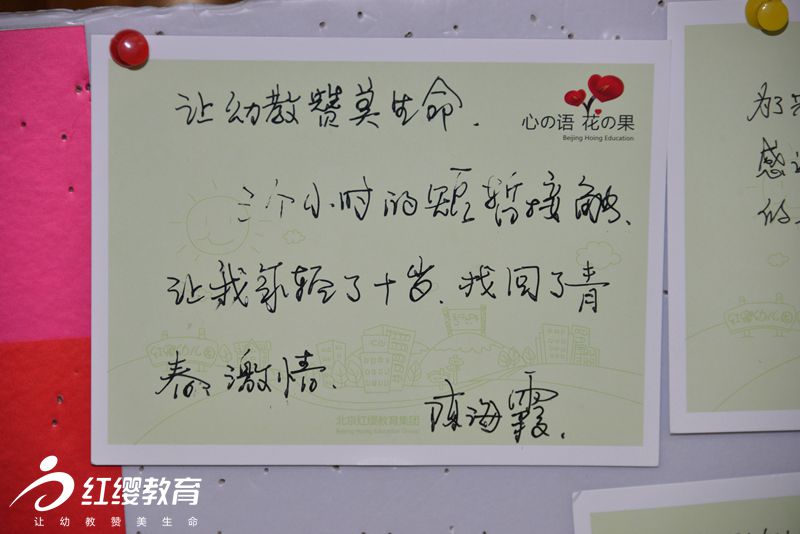 让幼教赞美生命.
心の语 花の果
Beijing Hoing Education
三个小时的短暂接触、
让我年轻了十岁、找回了青
春、激情、
陈海霞.
北京红缨教育集团
Beijing Hoing Education Group
红缨幼儿园
为了
感
的
红缨幼儿园
红缨教育
让幼教赞美生命